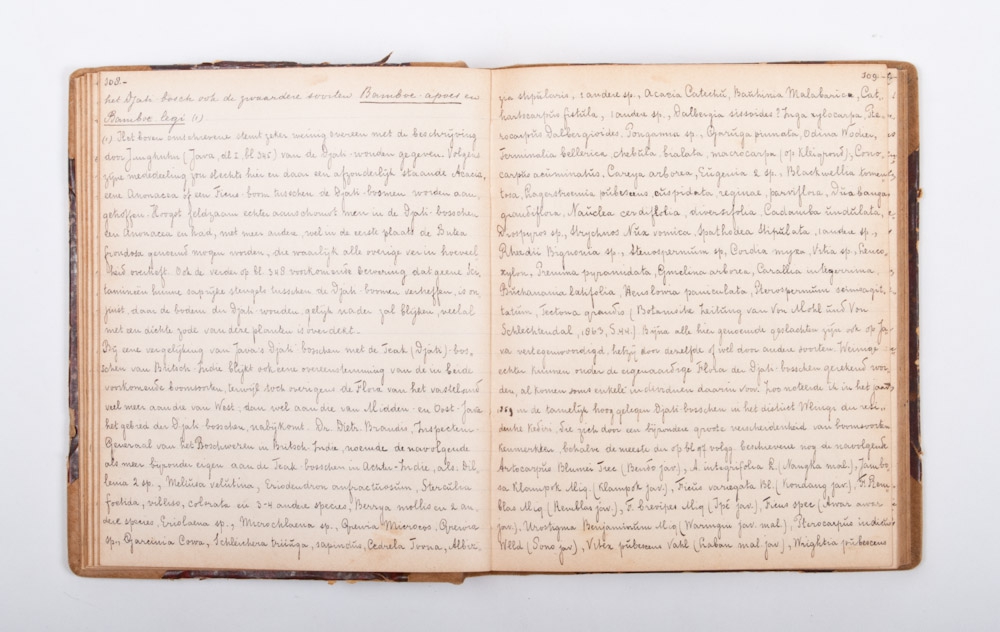 108.-
het Djati-bosch ook de zwaardere soorten Bamboe-apoes en
Bamboe legi (1)
(1) Het boven omschrevene stemt zeker weinig overeen met de beschrijving
door Junghuhn (Java, dl. 2. bl. 345) van de Djati-wouden gegeven. Volgens
zijne mededeeling zou slechts hier en daar een afzonderlijk staande Acacia,
eene Anonacea of een Ficus-boom tusschen de Djati-boomen worden aan-
getroffen. Hoogst zeldzaam echter aanschouwt men in de Djati-bosschen
een Anonacea en had, met meer andere, wel in de eerste plaats de Butea
frondosa genoemd mogen worden, die waarlijk alle overige ver in hoeveel-
heid overtreft. Ook de verder op bl. 348 voorkomende bewering dat geene Sci-
tamineën hunne saprijke stengels tusschen de Djati-boomen verheffen, is on-
juist, daar de bodem der Djati-wouden, gelijk nader zal blijken, veelal
met een dichte zode van deze planten is overdekt.
Bij eene vergelijking van Java's Djati-bosschen met de Teak-(Djati)-bos-
schen van Britsch-Indie blijkt ook eene overeenstemming van de in beide
voorkomende boomsoorten, terwijl toch overigens de Flora van het vasteland
veel meer aan die van West- dan wel aan die van Midden- en Oost-Java
het gebied der Djati-bosschen, nabijkomt. Dr. Dietr. Brandis, Inspecteur-
Generaal van het Boschwezen in Britsch-Indie, noemde de navolgende
als meer bijzonder eigen aan de Teak-bosschen in Achter-Indie, als: Dil-
lenia 2 sp., Meliusa velutina, Eriodendron anfractuosum, Sterculia
foetida, villosa, colorata en 3-4 andere species, Berrya mollis en 2 an-
dere species, Eriolaena sp., Microchlaena sp., Grewia Microcos, Grewia
sp., Garcinia Cowa, Schleichera trijuga, sapindus, Cedrela Toona, Albiz-
109.-
zia stipularis, 1 andere sp., Acacia Catechu, Bauhinia Malabarica, Cat-
hartocarpus fistula, 1 andere sp., Dalbergia sissoides? Inga xylocarpa, Pte-
rocarpus Dalbergioides, Pongamia sp., Garuga pinnata, Odina Wodier,
Terminalia bellerica, chebula, bialata, macrocarpa (op Kleigrond), Cono-
carpus acuminatus, Careya arborea, Eugenia 2 sp., Blackwellia tomen-
tosa, Lagerstroemia pubescens, cuspidata, reginae, parviflora, Duabanga
grandiflora, Nauclea cordifolia, diversifolia, Cadamba undulata,
Diospyros sp., Strychnos Nux vomica, Spathodea Stipulata, 1 andere sp.,
Rheedii Bignonia sp., Stereospermum sp., Cordia myxa, Vitex sp., Leuco-
xylon, Premna pyramidata, Gmelina arborea, Carallia integerrima,
Buchanania latifolia, Henslowia paniculata, Pterospermum semisagit-
tatum, Tectona grandis (Botanische Zeitung van Von Mohl und Von
Schlechtendal, 1863, S. 44.) Bijna alle hier genoemde geslachten zijn ook op Ja-
va vertegenwoordigd, hetzij door dezelfde of wel door andere soorten. Weinige
echter kunnen onder de eigenaardige Flora der Djati-bosschen gerekend wor-
den, al komen soms enkele individuen daarin voor. Zoo noteerde ik in het jaar
in de tamelijk hoog gelegen Djati-bosschen in het district Wlingie der resi-
dentie Kediri, die zich door een bijzonder groote verscheidenheid van boomsoorten
kenmerken, behalve de meeste der op bl. of volgg. beschrevene nog de navolgende
Artocarpus Blumei Trec (Bendo jav.), A. integrifolia L. (Nangka mal.), Jambo-
sa Klampok Miq. (Klampok jav.), Ficus variegata Bl. (Kondang jav.), F. Rem-
blas Miq. (Remblas jav.), F. Grevipes Miq. (Ipé jav.), Ficus spec. (Awar-awar
jav.), Urostigma Benjamineum Miq. (Waringin jav. mal.), Pterocarpus indicus
Willd (Sono jav.), Vitex pubescens Vahl (Laban mal. jav.), Wrightia pubescens